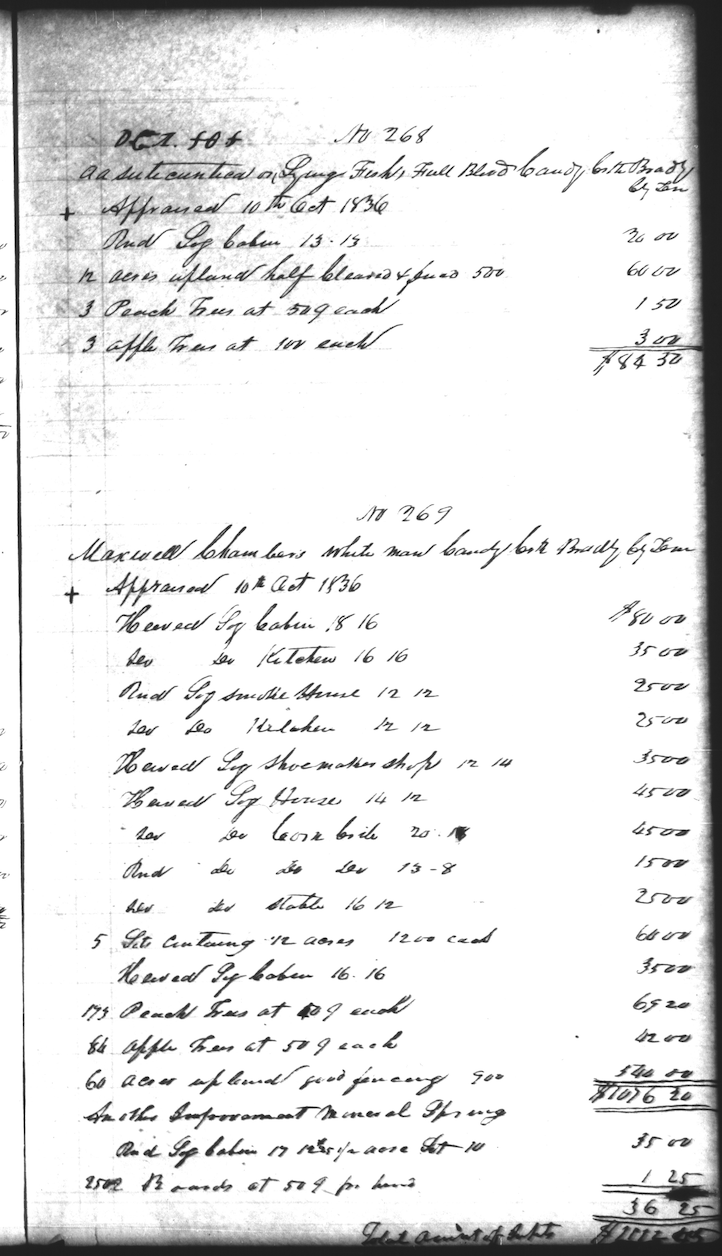 No 268
Full Blood Candy Creek Bradly
Cy Ten
+ Appraised 10th Oct 1836
Rnd Log Cabin 13 . 13 20 00
12 acres upland half Cleared & 500 60 00
3 Peach Trees at 50 ¢ each 1 50
3 apple Trees at 100 each 3 00
$84 50
No 269
Maxwell Chambers white man Candy Crk Bradly Cy Tenn
+ Appraised 10th Oct 1836
Hewed Log Cabin 18 16 $80 00
Do Do Kitchen 16 16 35 00
Rnd Log smoke House 12 12 25 00
Do Do Kitchen 12 12 25 00
Hewed Log Shoemaker shop 12 14 35 00
Hewed Log House 14 12 45 00
Do Do Corn Crib 20 . 45 00
Rnd Do Do Do 13 - 8 15 00
Do Do stable 16 12 25 00
5 Lots Containing 12 acres 12 00 each 60 00
Hewed Log Cabin 16 . 16 35 00
173 Peach Trees at 40 ¢ each 69 20
84 apple Trees at 50 ¢ each 42 00
60 acres upland good fencing 900 540 00
$1076 20
Another Improvement Mineral Spring
Rnd Log Cabin 17 12 acre Lot 10 35 00
250 Boards at 50 ¢ pr hund 1 25
36 25
Total Amount of